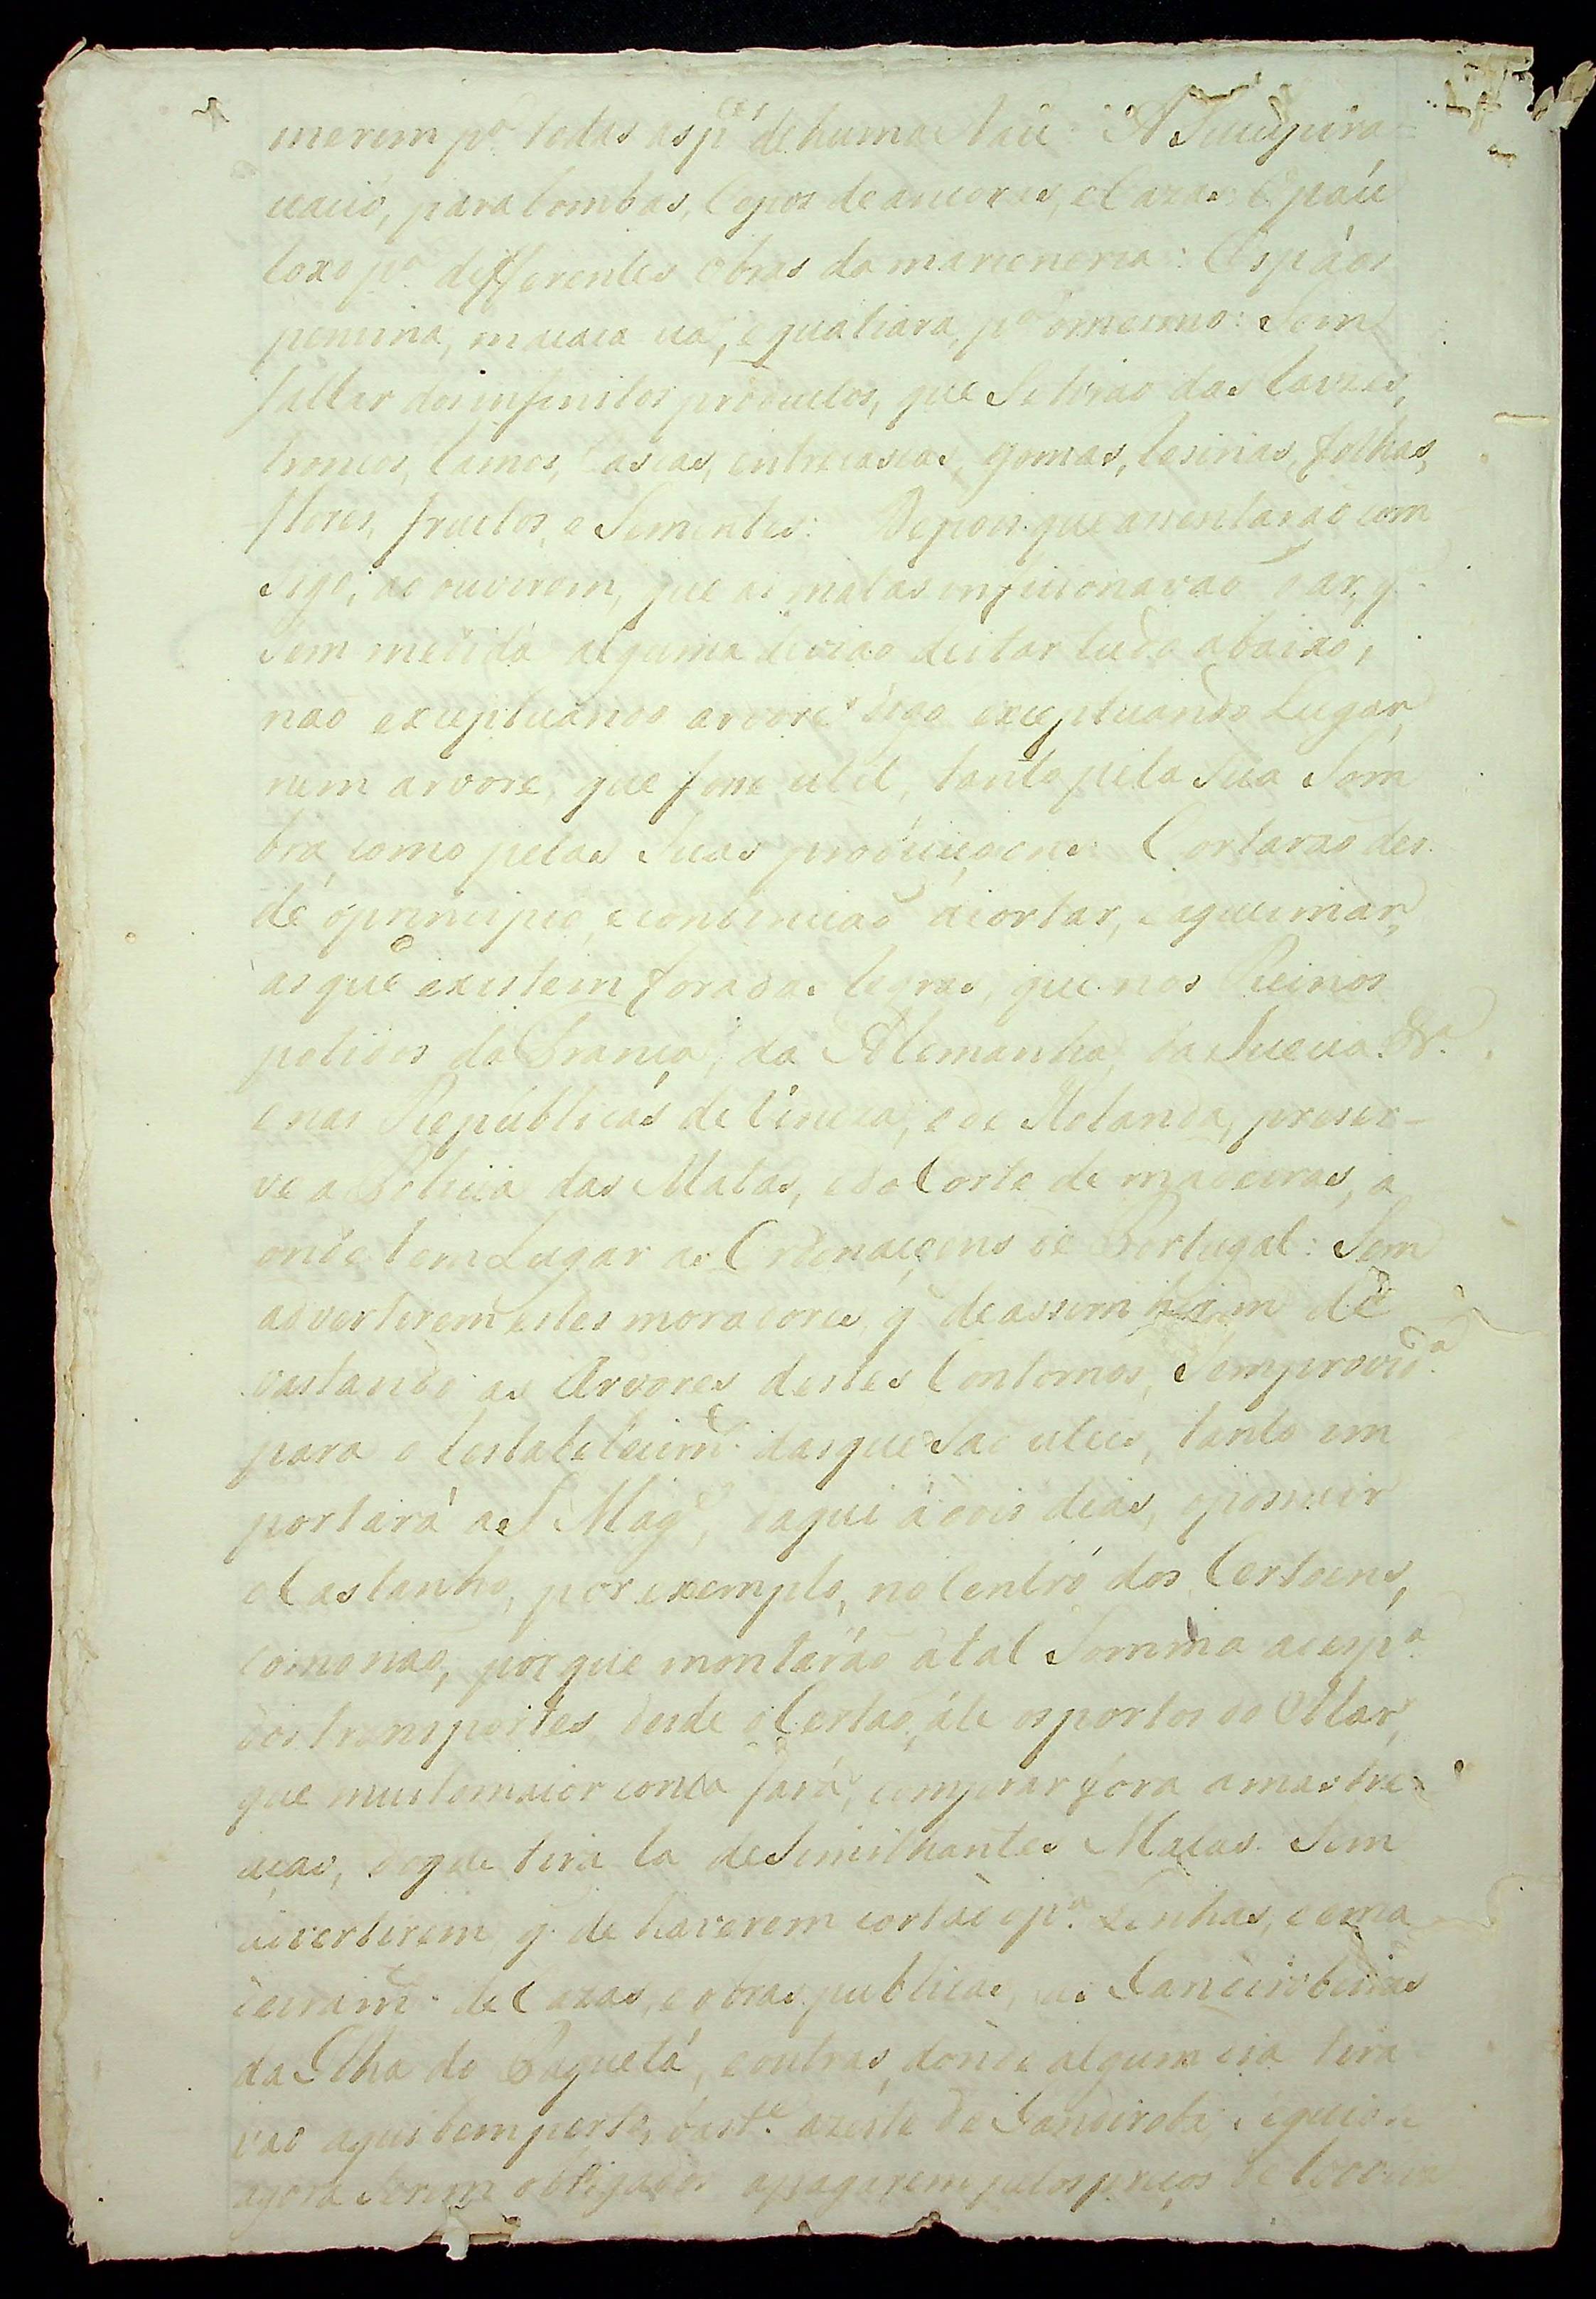 merem p.ª todas as p.es de huma Náu: A Sucupira
uacú, para bombas, Cepos de ancoras, e Cazas: O páu
roxo p.ª differentes obras da marceneria: Os páos
penima, macaca uá, e quatiara, p.ª o mesmo: Sem
fallar dos infinitos productos, que Se tirão das raizes,
troncos, ramos, cascas, entrecascas, gomas, resinas, folhas,
flores, fructos, e Sementes: Depois que assentarão com
Sigo, ao ouvirem, que as matas inficionavão o ar, q.
Sem medida alguma devião deitar tudo abaixo,
não exceptuando arvore, digo exceptuando Lugar,
nem arvore, que fosse util, tanto pela Sua Som
bra, como pelas Suas producçoens: Cortarão des
de o principio, e continuão á cortar, e a queimar,
as que existem fora das regras, que nos Reinos
polidos da França, da Alemanha, da Suecia &.ª
e nas Republicas de Veneza, e de Holanda, prescre-
ve a Policia das Matas, e do Corte de madeiras, a
onde tem Lugar as Ordenaçoens de Portugal: Sem
advertirem estes moradores, q. de assim hirem de
vastando as Arvores destes Contornos, Sem provid.ª
para o restabelecim.to das que São uteis, tanto im
portará a S. Mag.e, daqui á dois dias, o possuir
o Castanho, por exemplo, no Centro dos Certoens,
como não, porque montarão á tal Somma a desp.ª
dos transportes, desde o Certão, áte os portos do Mar,
que muito maior conta fará, comprar fora a mastre
açao, do que tira la de Similhantes Matas. Sem
advertirem q. de haverem cortado p.ª Lenhas, e ema
deiram.to de Cazas, e obras publicas, as Jandirobeiras
da Ilha do Paquetá, e outras, donde algum dia tira
vão aqui bem perto, bast.e azeite de Jandiroba,
agora Serem obrigados a pagarem pelos preços de